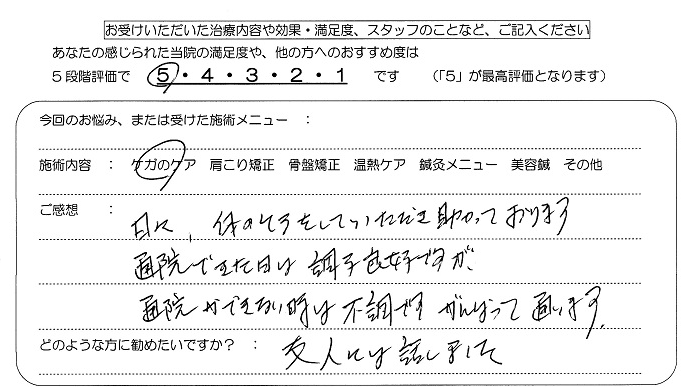 お受けいただいた治療内容や効果・満足度、スタッフのことなど、ご記入ください
あなたの感じられた当院の満足度や、他の方へのおすすめ度は
5段階評価で 5・4・3・2・1 です (「5」が最高評価となります)
今回のお悩み、または受けた施術メニュー :
施術内容 : ケガのケア 肩こり矯正 骨盤矯正 温熱ケア 鍼灸メニュー 美容鍼 その他
ご感想 : 日々、体の をしていただき助かっております
通院できた日は調子良好ですが、
通院ができない時は不調です がんばって通います。
どのような方に勧めたいですか? : 友人には話しました